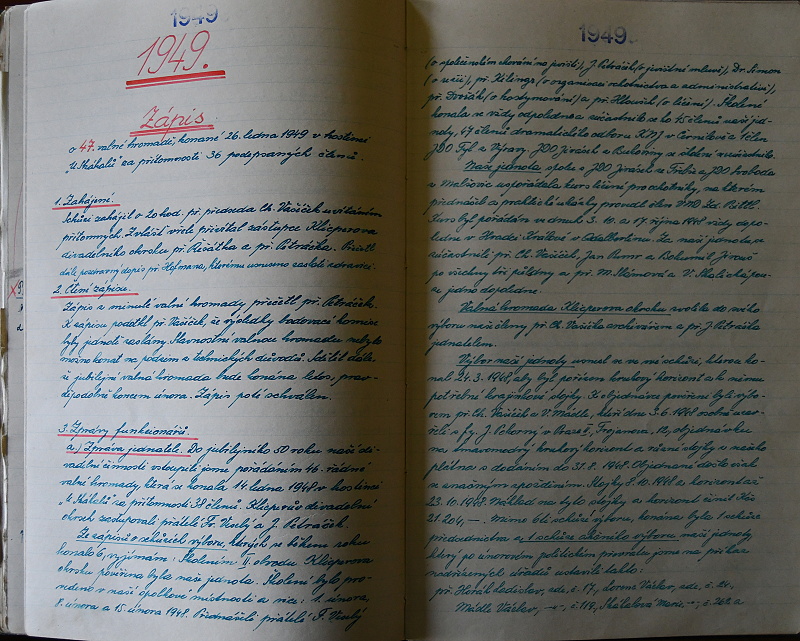 1949
1949.
Zápis
o 47. valné hromadě, konané 26. ledna 1949 v hostinci
"U Skákalů" za přítomnosti 36 podepsaných členů.
1. Zahájení.
Schůzi zahájil o 20 hod. př. předseda Ch. Vašíček uvítáním
přítomných. Zvláště vřele přivítal zástupce Klicperova
divadelního okrsku př. Řeřátka a př. Petráčka. Přečetl
dále pozdravný dopis př. Hofmana, kterému usneseno zaslati zdravici.
2. Čtení zápisu.
Zápis z minulé valné hromady přečetl př. Petráček.
K zápisu podotkl př. Vašíček, že výsledky bodovací komise
byly jednotě zaslány. Slavnostní valnou hromadu nebylo
možno konat na podzim z technických důvodů. Sdělil dále,
že jubilejní valná hromada bude konána letos, prav-
děpodobně koncem února. Zápis poté schválen.
3. Zprávy funkcionářů.
a.) Zpráva jednatele. Do jubilejního 50 roku naší di-
vadelní činnosti vstoupili jsme pořádáním 46. řádné
valné hromady, která se konala 14. ledna 1948 v hostinci
"U Skákalů" za přítomnosti 38 členů. Klicperův divadelní
okrsek zastupovali přátelé Fr. Veselý a J. Petráček.
Ze zápisů o schůzích výboru, kterých se během roku
konalo 6, vyjímám: Školením II. obvodu Klicperova
okrsku pověřena byla naše jednota. Školení bylo pro-
vedeno v naší spolkové místnosti a sice: 1. února,
8. února a 15. února 1948. Přednášeli přátelé F. Veselý
1949
(o společenském chování na jevišti), J. Petráček (o jevištní mluvě), Dr. Šimon
(o režii), př. Kilingr (o organisaci ochotnictva a administrativě),
př. Dvořák (o kostymování) a př. Hlavatý (o líčení). Školení
konala se vždy odpoledne a zúčastnilo se ho 15 členů naší jed-
noty, 47 členů dramatického odboru KNJ v Černilově a 1 člen
JDO Tyl z Výravy. JDO Jirásek z Bukoviny se školení nezúčastnilo.
Naše jednota spolu s JDO Jirásek z Třebše a JDO Svoboda
z Malšovic uspořádala kurs líčení pro ochotníky, na kterém
přednášel a praktické ukázky prováděl člen
Kurs byl pořádán ve dnech 3. 10. a 17. října 1948 vždy dopo-
ledne v Hradci Králové v Adalbertinu. Za naši jednotu se
zúčastnili př. Ch. Vašíček, Jan Pumr a Bohumil Jirouš
po všechny tři půldny a př. M. Němcová a V. Skalická pou-
ze jedno dopoledne.
Valná hromada Klicperova okrsku zvolila do svého
výboru naše členy, př. Ch. Vašíčka archivářem a př. J. Petráčka
jednatelem.
Výbor naší jednoty usnesl se ve své schůzi, která se ko-
nala 24. 3. 1948, aby byl pořízen kruhový horizont a k němu
potřebné krajinkové stojky. K objednávce pověřeni byli výbo-
rem př. Ch. Vašíček a V. Mádle, kteří dne 3. 6. 1948 osobně uzav-
řeli u fy. J. Pokorný v Praze II., Trojanova, 12, objednávku
na tmavomodrý kruhový horizont a různé stojky z našeho
plátna s dodáním do 31. 8. 1948. Objednané došlo však
se značným zpožděním. Stojky 8. 10. 1948 a horizont až
23. 10. 1948. Náklad na tyto stojky a horizont činil Kčs
21.204,—. Mimo tři schůzí výboru, konána byla 1 schůze
předsednictva a 1 schůze akčního výboru naší jednoty
který po únorovém politickém převratu jsme na příkaz
nadřízených úřadů ustavili takto:
př. Horák Ladislav, zde, č. 17., Lorenc Václav, zde, č. 24.,
Mádle Václav, —"—, č. 118, Skákalová Marie, —"—, č. 268. a